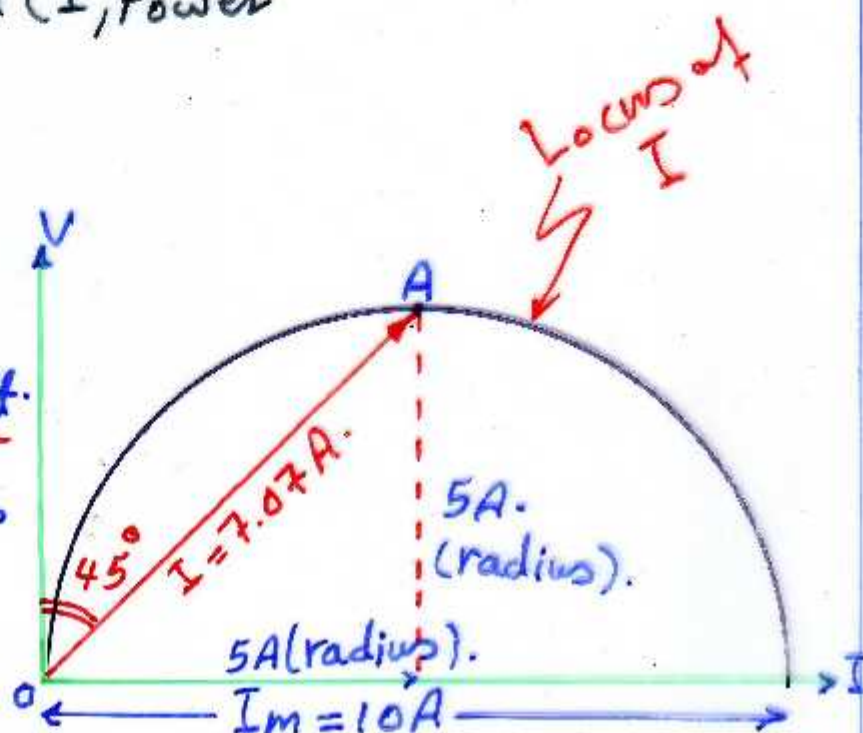 (I, Power
Locus of
I
V
A
t.
45°
I=7.07A.
5A.
(radius).
5A(radius).
o
I
Im=10A